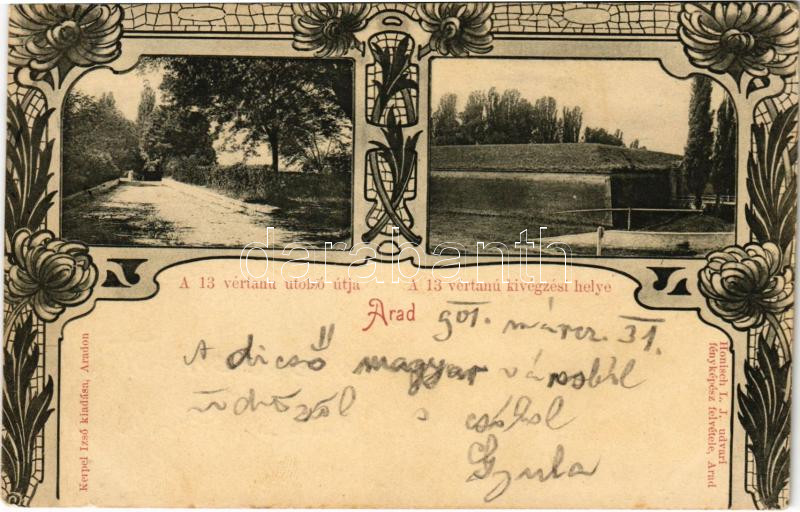 A 13 vértanú utolsó útja
A 13 vértanú kivégzési helye
Arad
901. márcz. 31.
A dicső magyar városból
üdvözöl s csókol
Gyula
Kerpel Izsó kiadása, Aradon
Honisch L. J. udvari
fényképész felvétele, Arad
darabanth